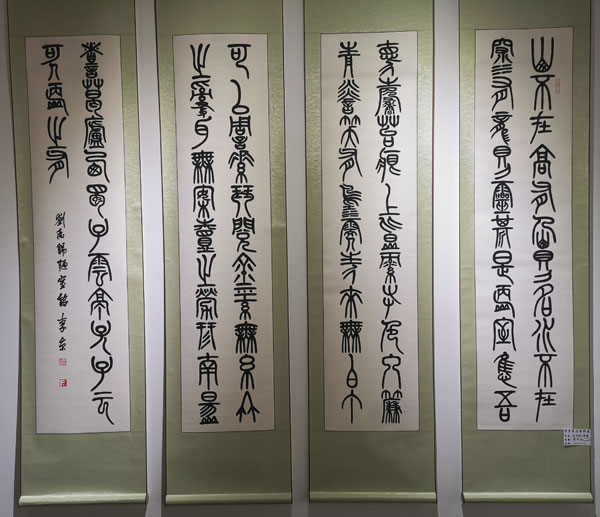 山不在高有仙則名水不在
深有龍則靈斯是陋室惟吾
德馨苔痕上階綠草色入簾
青談笑有鴻儒往來無白丁
可以調素琴閱金經無絲竹
之亂耳無案牘之勞形南陽
諸葛廬西蜀子雲亭孔子云
何陋之有
劉禹錫陋室銘 李